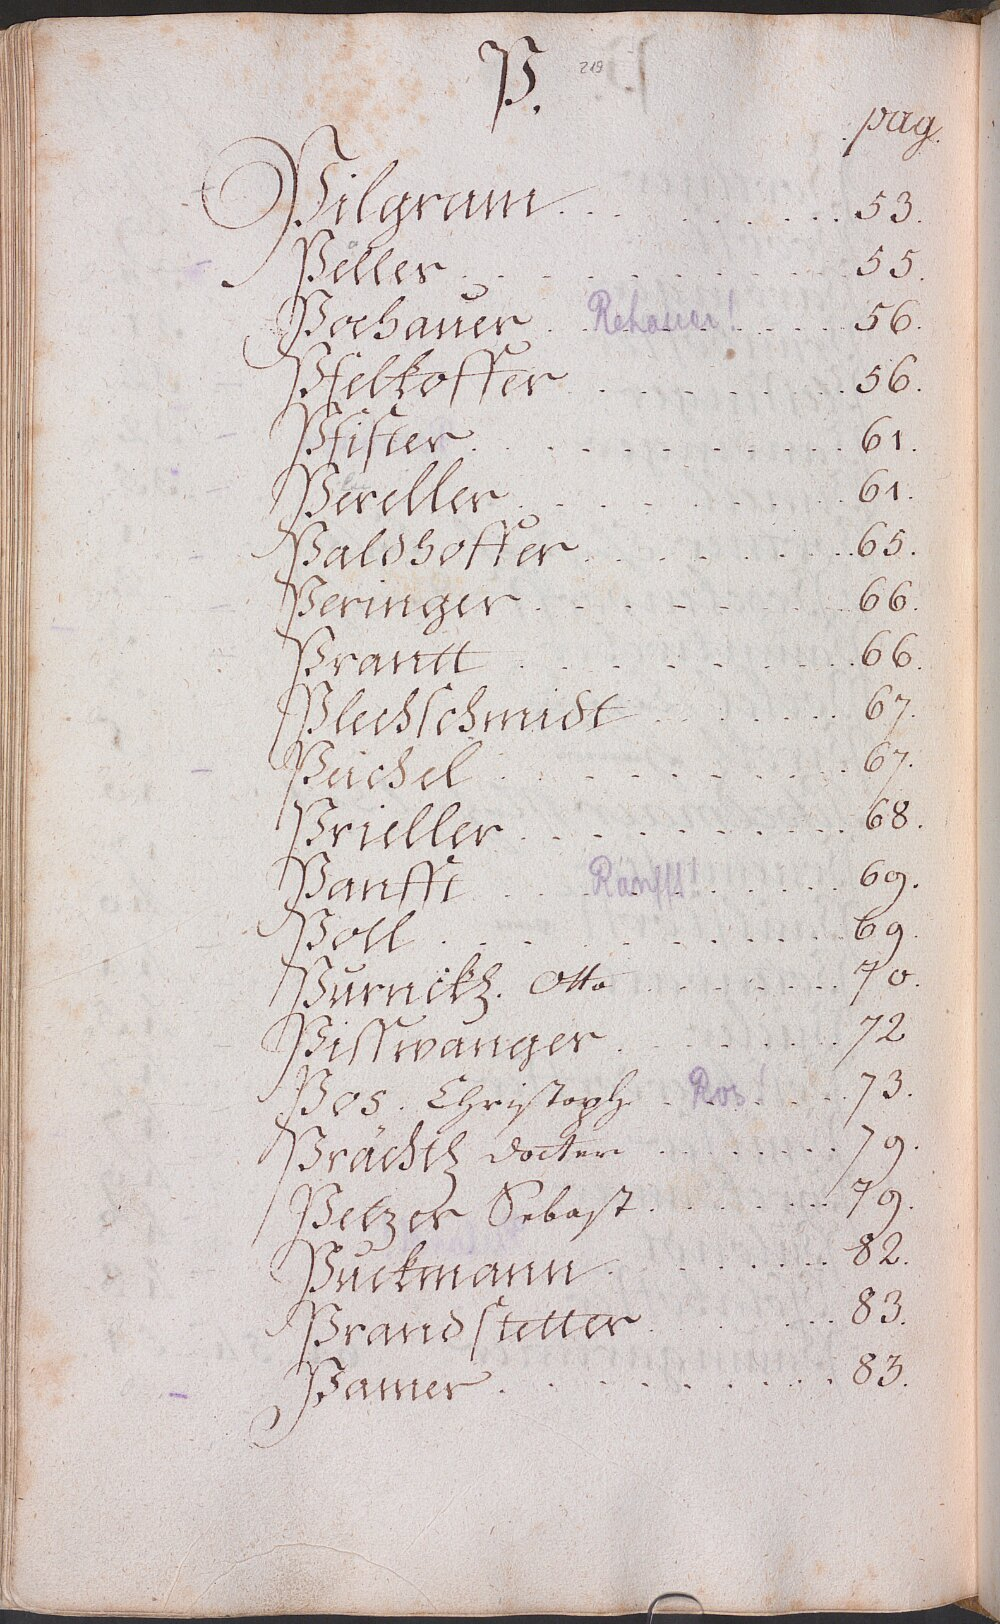 P. 219
pag.
Pilgram . . . . . . . . 53.
Peller . . . . . . . . 55.
Pochauer . . Rehauer! . . . 56.
Pfelkoffer . . . . . . . 56.
Pfister . . . . . . . . 61.
Pereller . . . . . . . . 61.
Paldhoffer . . . . . . . 65.
Peringer . . . . . . . . 66.
Prantt . . . . . . . . 66.
Plechschmidt . . . . . . 67.
Peichel . . . . . . . . 67.
Prieller . . . . . . . . 68.
Panfft . . Ranfft! . . . . 69.
Poll . . . . . . . . . 69.
Purnickh. Otto . . . . . . 70.
Pisswanger . . . . . . . 72
Pos. Christoph . Ros! . . . 73.
Prächtl docter . . . . . . 79.
Petzer Sebast . . . . . . 79.
Puckmann . . . . . . . 82.
Prandstetter . . . . . . 83.
Pamer . . . . . . . . 83.